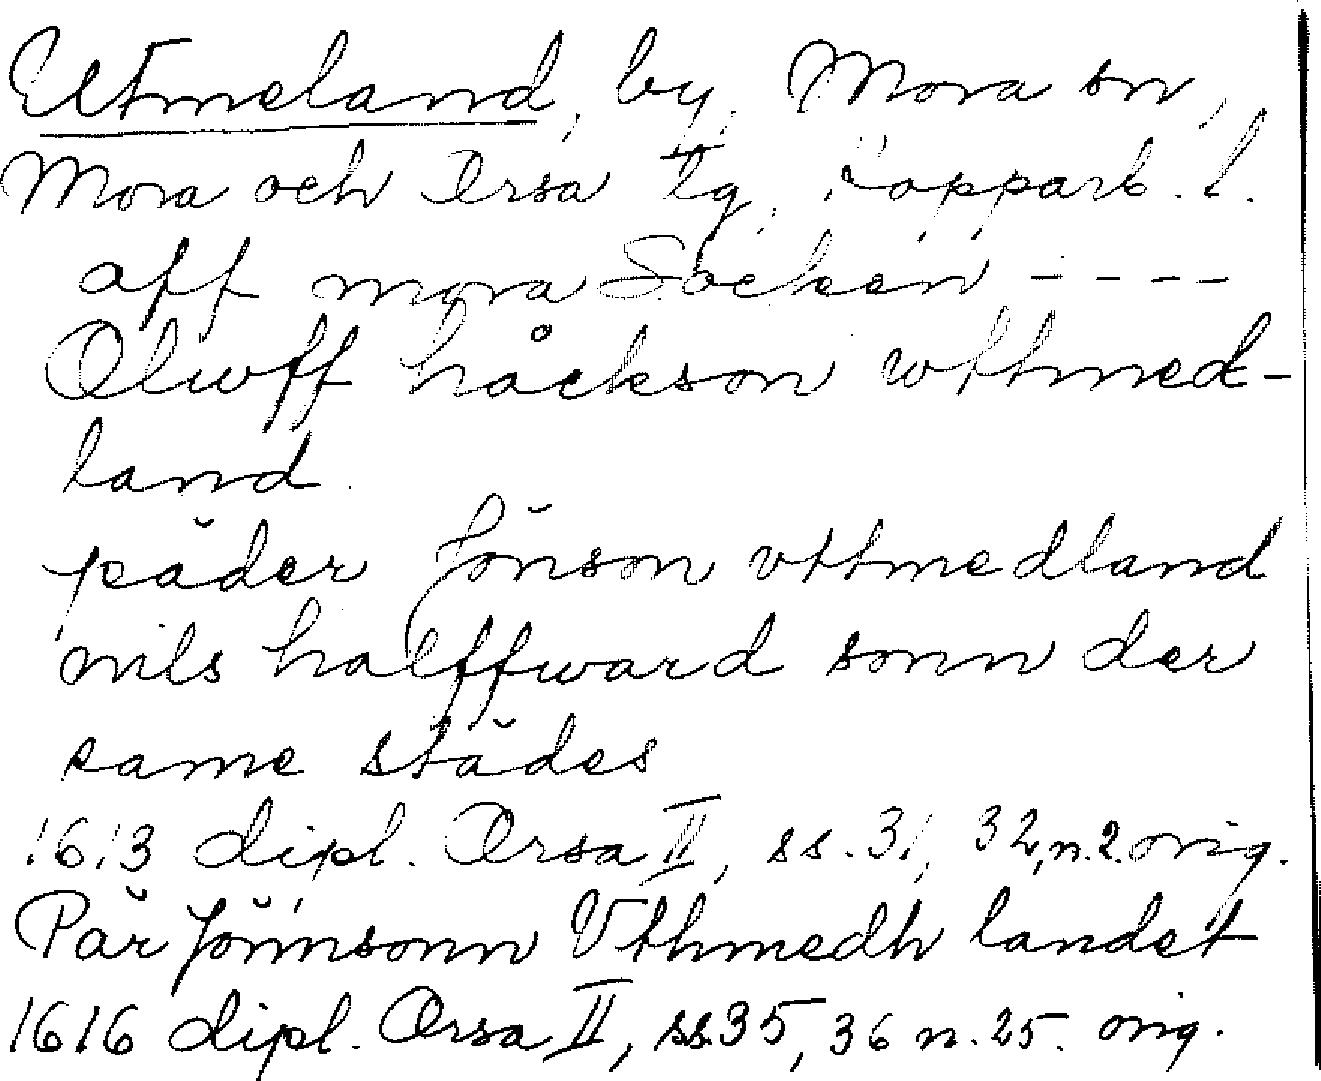 Utmeland, by, Mora sn,
Mora och Orsa tg, Kopparb. l.
aff mora Socken - - - -
Olwff håckson wttmed-
land.
päder Jönson vttmedland
nils halffward sonn der
same städes
1613 dipl. Orsa II, ss. 31, 32, n. 2. orig.
Pär Jönnsonn Vthmedh landet
1616 dipl. Orsa II, ss. 35, 36 n. 25. orig.